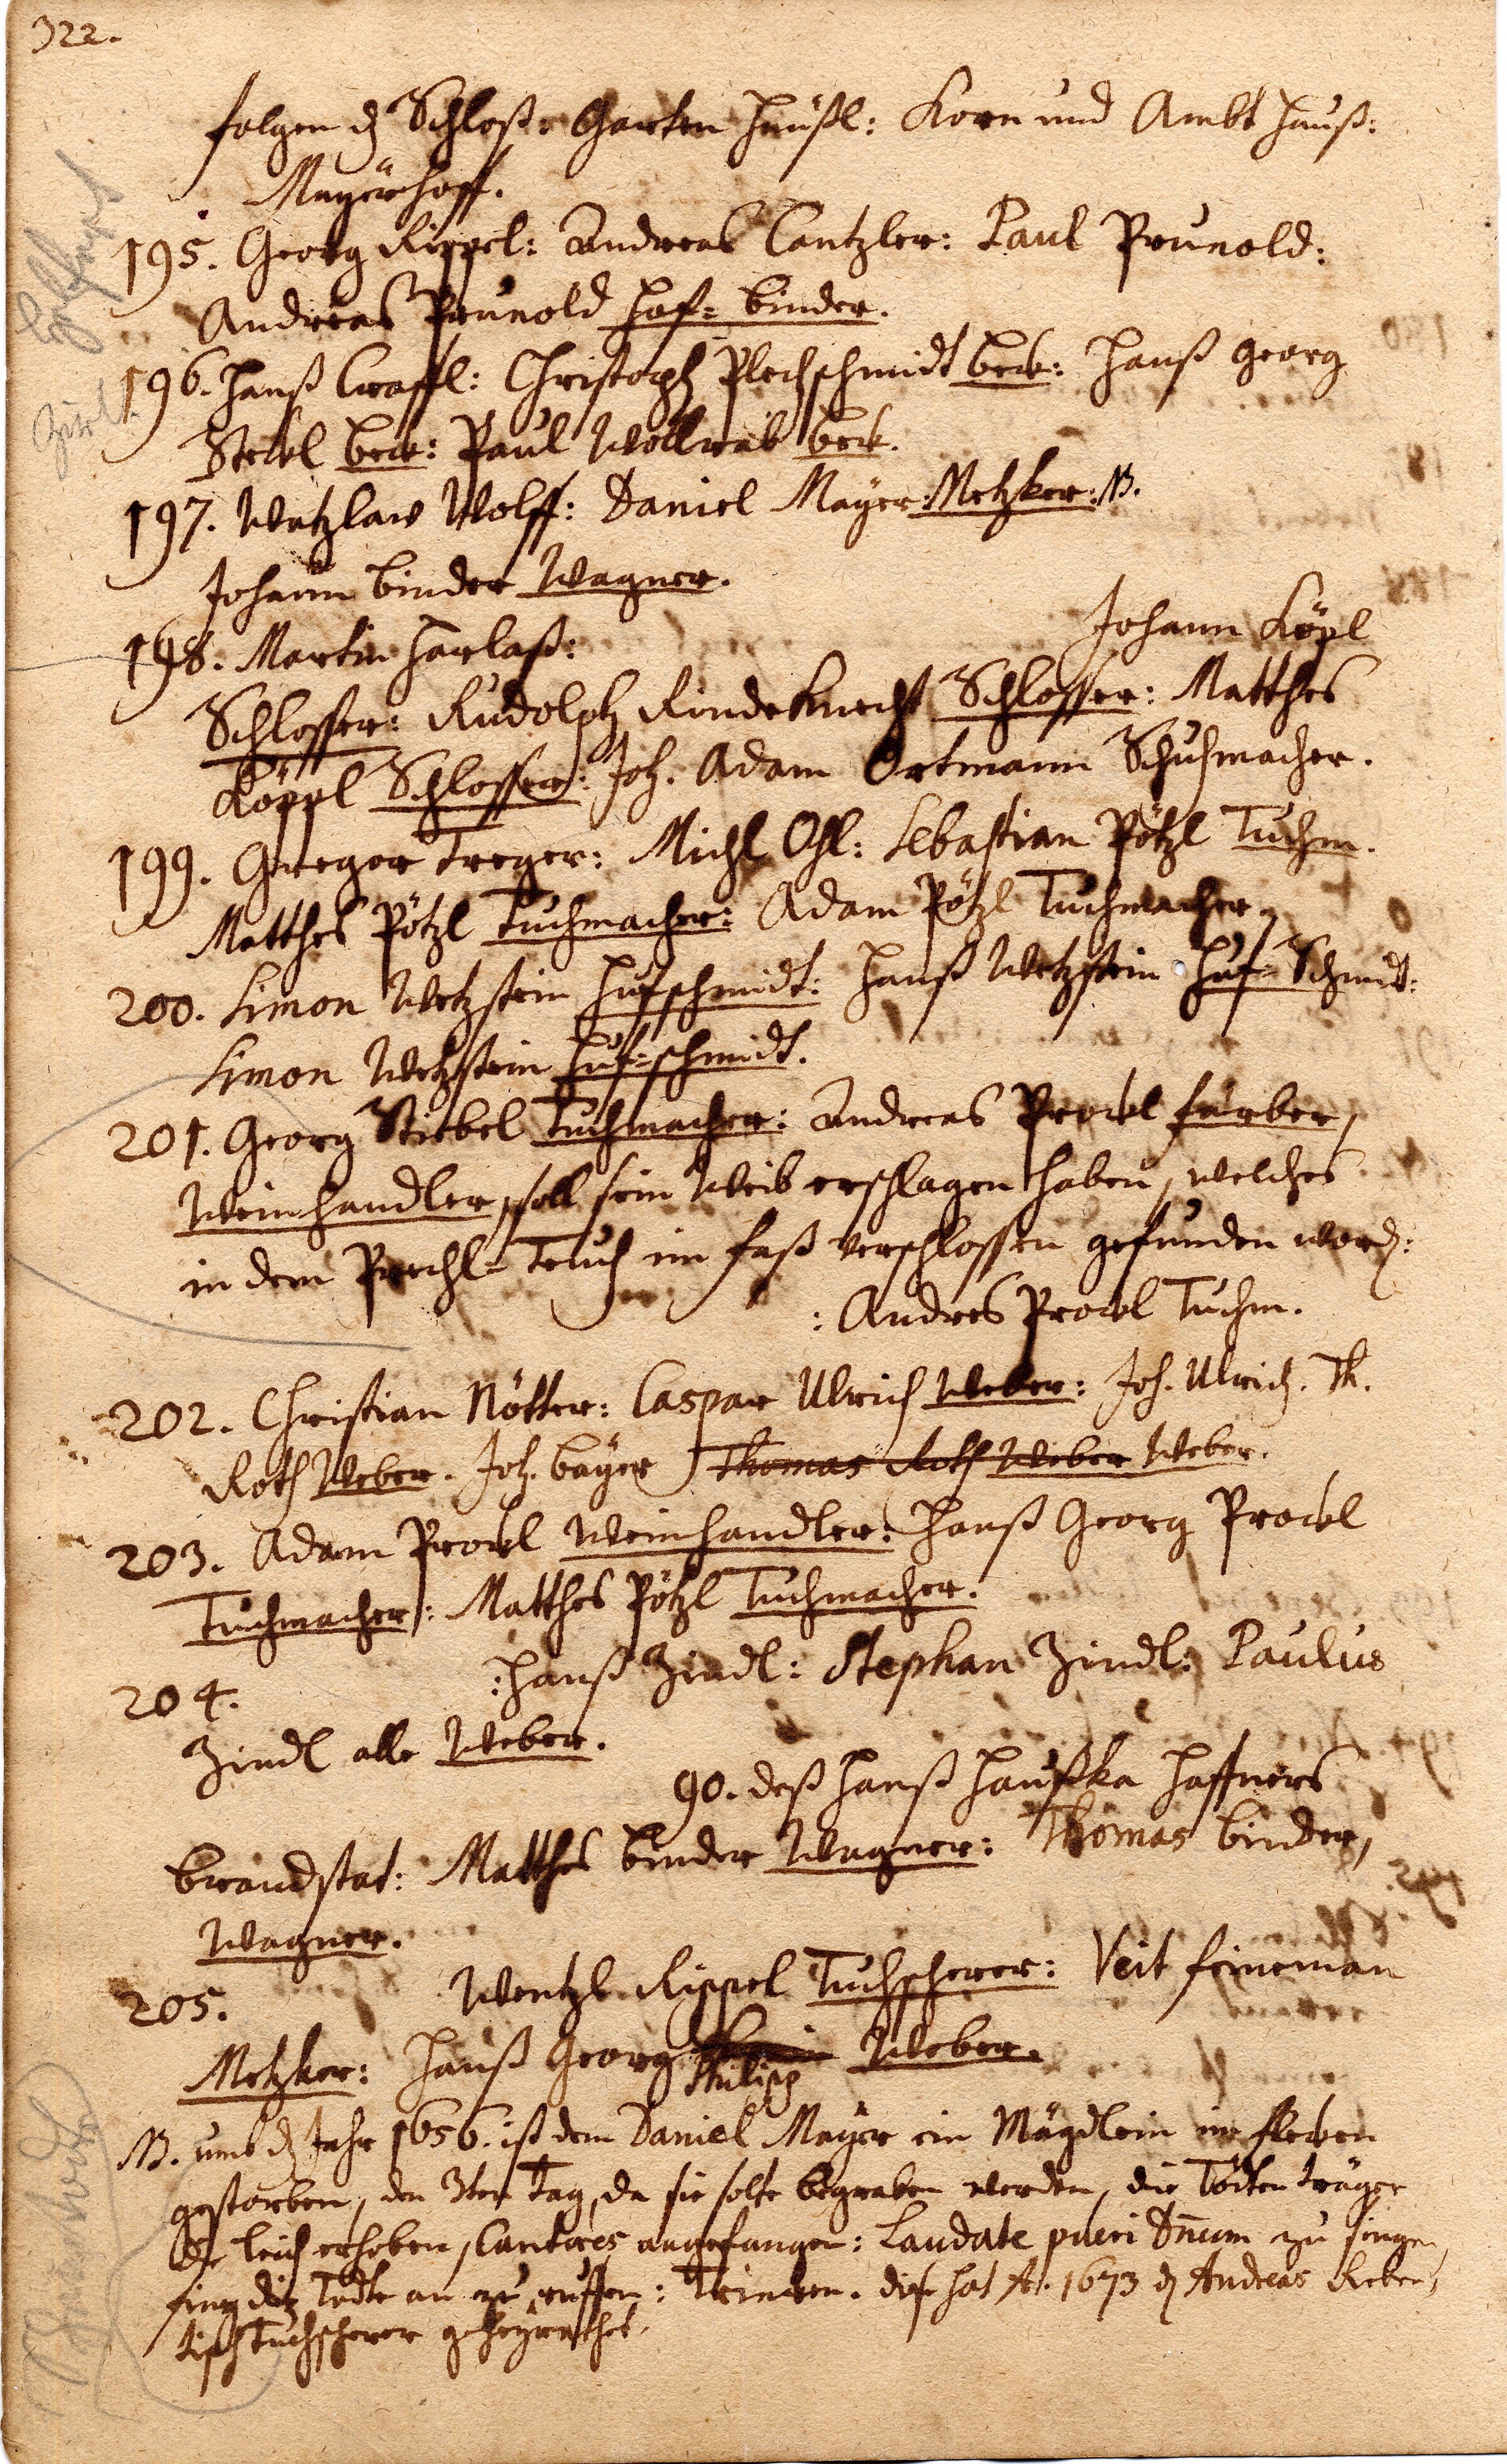 322.
folgen dz Schloß: Garten Häußl: Korn und Ambt Hauß:
Mayerhoff.
195. Georg Rippel: Andreas Cantzler: Paul Prunold:
Andreas Prunold Hof=binder.
196. Hanß Craffl: Christoph Plechschmidt beck: Hanß Georg
Steckl beck: Paul Wollrab beck.
197. Watzlaw Wolff: Daniel Mayer: Metzker: NB.
Johann binder Wagner.
198. Martin Harlaß: Johann Köpl
Schlosser: Rudolph Rindsknecht Schlosser: Matthes
Köppl Schlosser: Joh. Adam Ortmann Schuhmacher.
199. Gregor Treger: Michl Ohl: Sebastian Pötzl Tuchm.
Matthes Pötzl Tuchmacher: Adam Pötzl Tuchmacher.
200. Simon Wetzstein Hufschmidt: Hanß Wetzstein Huf=Schmidt:
Simon Wetzstein Huf=schmidt.
201. Georg Stiebel Tuchmacher: Andreas Prockl färber,
Weinhandler, soll sein Weib erschlagen haben, welches
in dem Prechl=Teuch im faß verschlossen gefunden word:
: Andres Prockl Tuchm.
202. Christian Nötter: Caspar Ulrich Weber: Joh. Ulrich. Th.
Roth Weber. Joh. bayer Thomas Roth Weber Weber.
203. Adam Prockl Weinhandler: Hanß Georg Prockl
Tuchmacher: Matthes Pötzl Tuchmacher.
204. : Hanß Zindl: Stephan Zindl: Paulus
Zindl alle Weber.
90. deß Hanß Haußka Haffners
brandstat: Matthes binder Wagner: Thomas binder,
Wagner.
205. Wentzl Rippel Tuchscherer: Veit feineman
Metzker: Hanß Georg Philipp Weber.
NB. umb dz Jahr 1656. ist dem Daniel Mayer ein Mägdlein im flecken
gestorben, den 3ten Tag, da sie solte begraben werden, die Todten träger
die leich erhoben, Cantores angefangen: Laudate pueri Dnum zu singen,
fing die Todte an zu ruffen: Trincken. dise hat Ao. 1673 dz Andreas Reben=
tisch Tuchscherer geheyrathet.